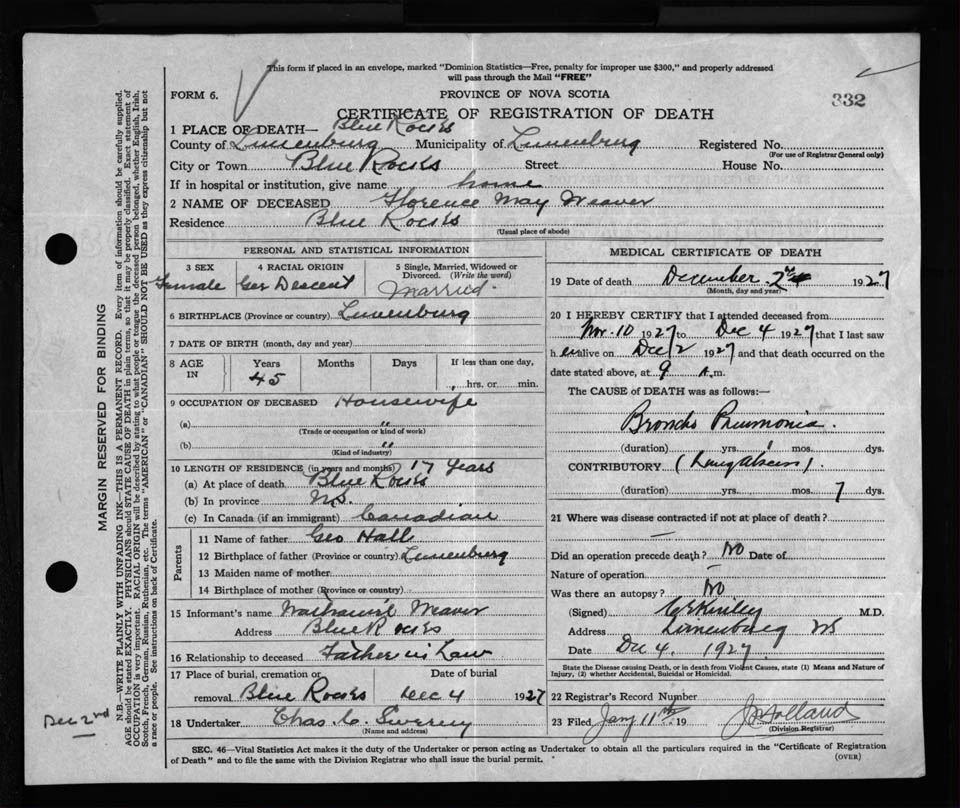 This form if placed in an envelope, marked "Dominion Statistics—Free, penalty for improper use $300," and properly addressed
will pass through the Mail "FREE"
332
FORM 6.
PROVINCE OF NOVA SCOTIA
CERTIFICATE OF REGISTRATION OF DEATH
1 PLACE OF DEATH— Blue Rocks
County of Lunenburg Municipality of Lunenburg Registered No.
(For use of Registrar General only)
City or Town Blue Rocks Street House No.
If in hospital or institution, give name home
2 NAME OF DECEASED Florence May Weaver
Residence Blue Rocks
(Usual place of abode)
PERSONAL AND STATISTICAL INFORMATION
3 SEX 4 RACIAL ORIGIN 5 Single, Married, Widowed or
Divorced. (Write the word)
Female Ger Descent Married
6 BIRTHPLACE (Province or country) Lunenburg
7 DATE OF BIRTH (month, day and year)
8 AGE IN Years Months Days If less than one day,
45 hrs. or min.
9 OCCUPATION OF DECEASED Housewife
(a) "
(Trade or occupation or kind of work)
(b) "
(Kind of industry)
10 LENGTH OF RESIDENCE (in years and months) 17 Years
(a) At place of death Blue Rocks
(b) In province N.S.
(c) In Canada (if an immigrant) Canadian
Parents
11 Name of father Geo Hall
12 Birthplace of father (Province or country) Lunenburg
13 Maiden name of mother
14 Birthplace of mother (Province or country)
15 Informant's name Nathaniel Weaver
Address Blue Rocks
16 Relationship to deceased Father in Law
17 Place of burial, cremation or Date of burial
removal Blue Rocks Dec 4 1927
18 Undertaker Chas. C. Sweeny
(Name and address)
MEDICAL CERTIFICATE OF DEATH
19 Date of death December 2nd 1927
(Month, day and year)
20 I HEREBY CERTIFY that I attended deceased from
Nov. 10 1927 to Dec 4 1927 that I last saw
h er alive on Dec 2 1927 and that death occurred on the
date stated above, at 9 A.m.
The CAUSE OF DEATH was as follows:
Broncho Pneumonia.
(duration) yrs. mos. dys.
CONTRIBUTORY (Lung abscess).
(duration) yrs. mos. 7 dys.
21 Where was disease contracted if not at place of death?
—
Did an operation precede death? No Date of
Nature of operation —
Was there an autopsy? No
(Signed) M.D.
Address Lunenburg NS
Date Dec 4, 1927
State the Disease causing Death, or in death from Violent Causes, state (1) Means and Nature of
Injury, (2) whether Accidental, Suicidal or Homicidal.
22 Registrar's Record Number
23 Filed Jany 11th 19 Holland
(Division Registrar)
SEC. 46—Vital Statistics Act makes it the duty of the Undertaker or person acting as Undertaker to obtain all the particulars required in the "Certificate of Registration
of Death" and to file the same with the Division Registrar who shall issue the burial permit.
(OVER)
MARGIN RESERVED FOR BINDING
N.B.—WRITE PLAINLY WITH UNFADING INK—THIS IS A PERMANENT RECORD. Every item of information should be carefully supplied.
AGE should be stated EXACTLY. PHYSICIANS should STATE CAUSE OF DEATH in plain terms, so that it may be properly classified. Exact statement of
OCCUPATION is very important. RACIAL ORIGIN will be described by stating to what people or tongue the deceased person belonged, whether English, Irish,
Scotch, French, German, Russian, Ruthenian, etc. The terms "AMERICAN" or "CANADIAN" SHOULD NOT BE USED as they express citizenship but not
a race or people. See instructions on back of Certificate.
Dec 2nd